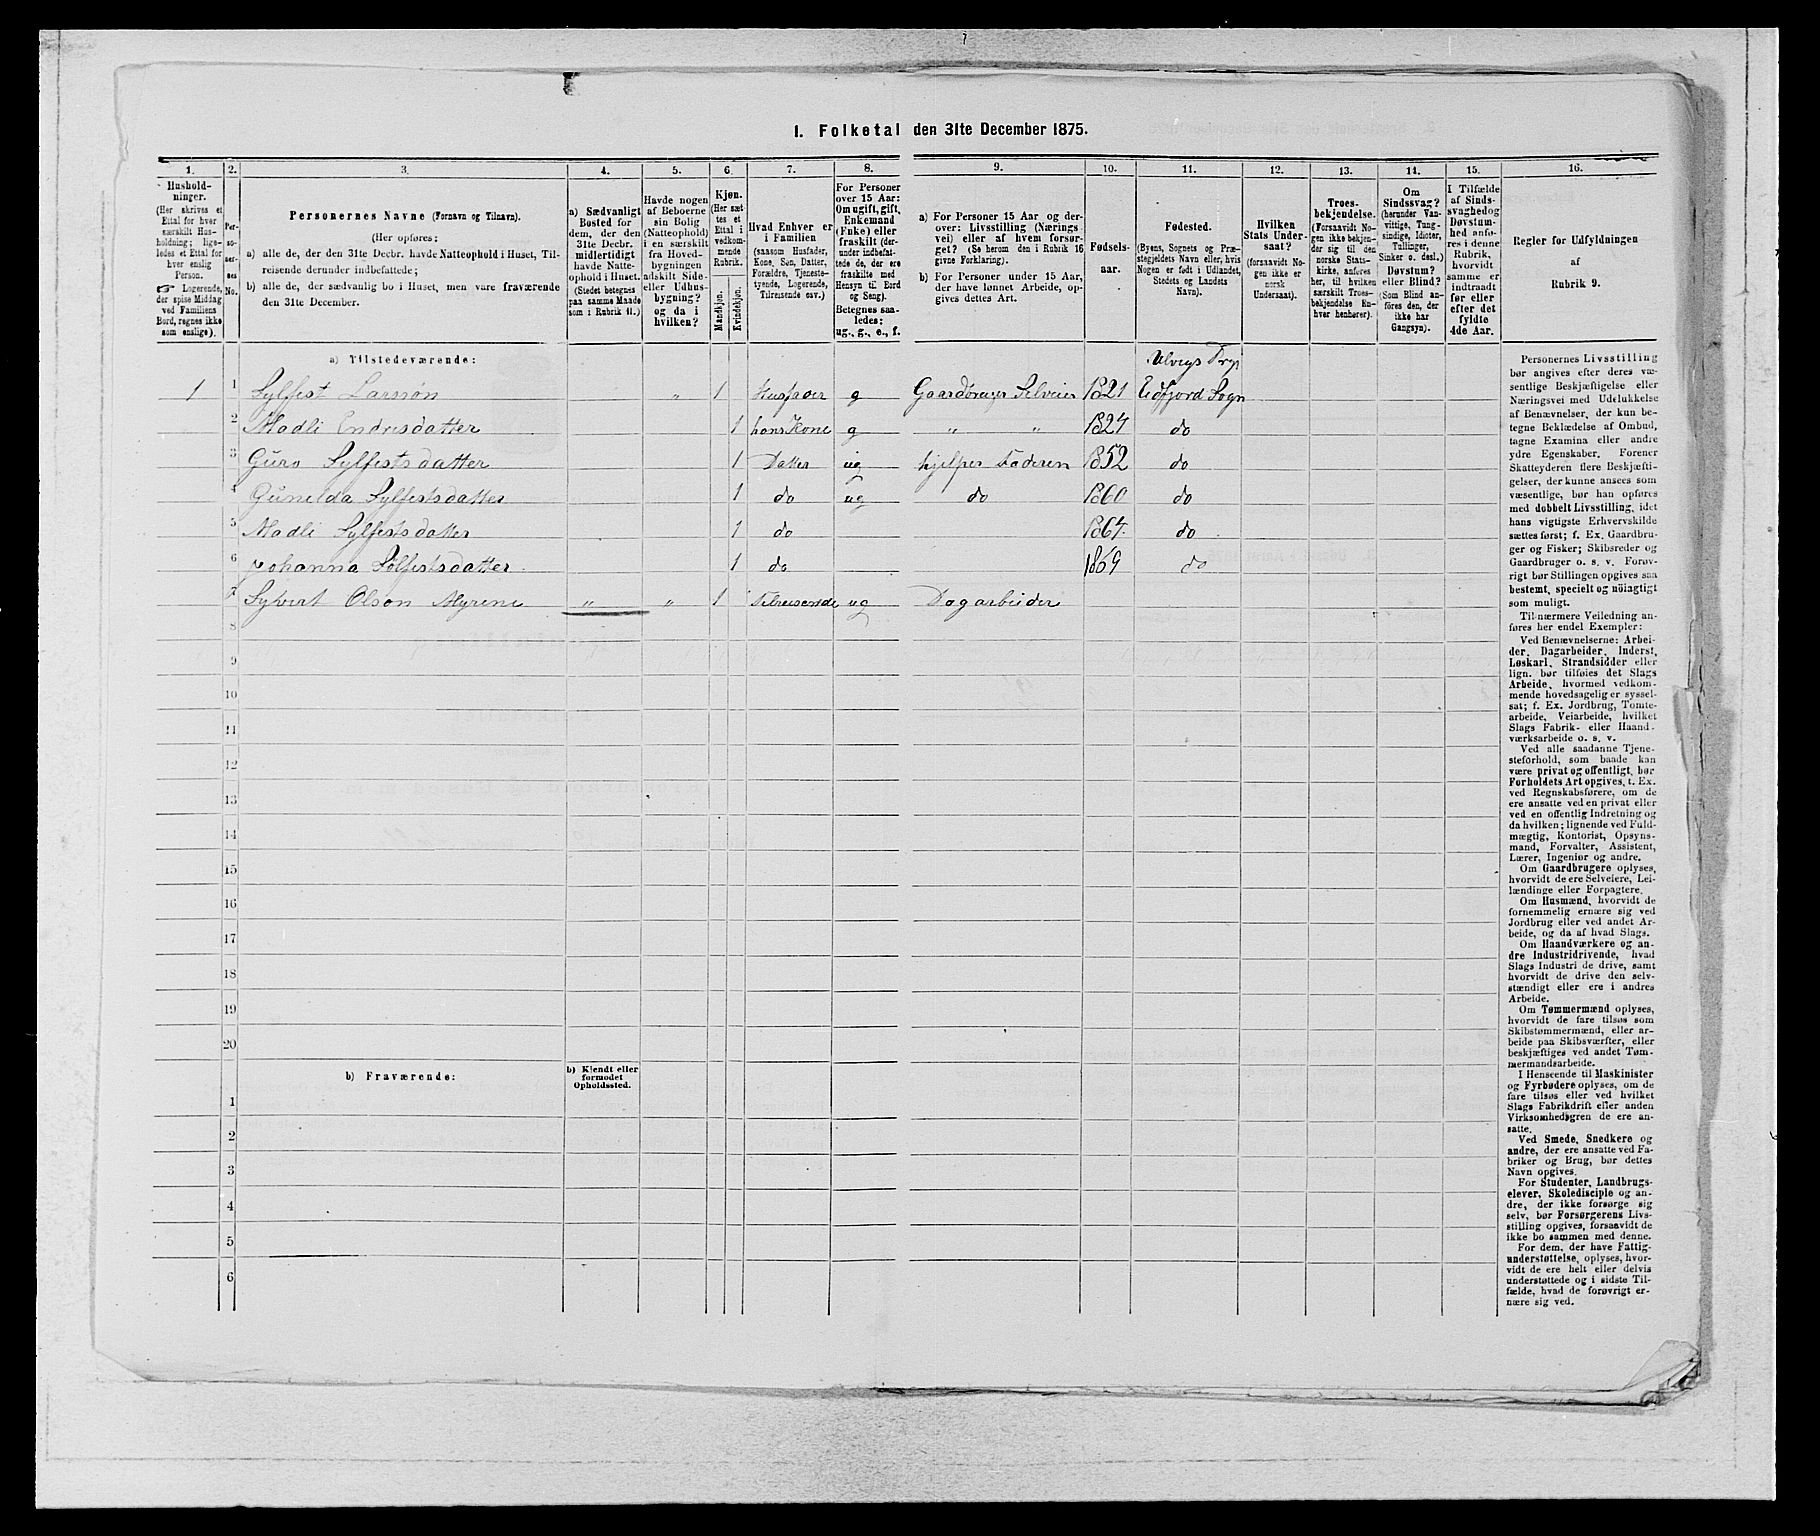 1. Folketal den 31te December 1875.
1.
Hushold-
ninger.
(Her skrives et
Ettal for hver
særskilt Hus-
holdning; lige-
ledes et Ettal for
hver enslig
Person.
☞ Logerende,
der spise Middag
ved Familiens
Bord, regnes ikke
som enslige).
2.
Per-
so-
ner-
nes
No.
3.
Personernes Navne (Fornavn og Tilnavn).
(Her opføres:
a) alle de, der den 31te Decbr. havde Natteophold i Huset, Til-
reisende derunder indbefattede;
b) alle de, der sædvanlig bo i Huset, men vare fraværende
den 31te December.
4.
a) Sædvanligt
Bosted for
dem, der den
31te Decbr.
midlertidigt
havde Natte-
ophold i Huset.
(Stedet betegnes
paa samme Maade
som i Rubrik 11.)
5.
Havde nogen
af Beboerne
sin Bolig
(Natteophold)
i en særskilt
fra Hoved-
bygningen
adskilt Side-
eller Udhus-
bygning?
og da i
hvilken?
6.
Kjøn.
(Her sæt-
tes et
Ettal i
vedkom-
mende
Rubrik.
Mandkjøn.
Kvindekjøn.
7.
Hvad Enhver er
i Familien
(saasom Husfader,
Kone, Søn, Datter,
Forældre, Tjeneste-
tyende, Logerende,
Tilreisende osv.)
8.
For Personer
over 15 Aar:
Om ugift, gift,
Enkemand
(Enke) eller
fraskilt (der-
under indbefat-
tede de, der ere
fraskilte med
Hensyn til Bord
og Seng).
Betegnes saa-
ledes:
ug., g., e., f.
9.
a) For Personer 15 Aar og der-
over: Livsstilling (Nærings-
vei) eller af hvem forsør-
get? (Se herom den i Rubrik 16
givne Forklaring).
b) For Personer under 15 Aar,
der have lønnet Arbeide, op-
gives dettes Art.
10.
Fødsels-
aar.
11.
Fødested.
(Byens, Sognets og Præ-
stegjeldets Navn eller, hvis
Nogen er født i Udlandet,
Stedets og Landets
Navn).
12.
Hvilken
Stats Under-
saat?
(forsaavidt No-
gen ikke er
norsk
Undersaat).
13.
Troes-
bekjendelse.
(Forsaavidt No-
gen ikke bekjen-
der sig til den
norske Stats-
kirke, anføres
her, til hvilken
særskilt Troes-
bekjendelse En-
hver henhører).
14.
Om
Sindssvag?
(herunder Van-
vittige, Tung-
sindige, Idioter,
Tullinger,
Sinker o. desl.)
Døvstum?
eller Blind?
(Som Blind an-
føres den, der
ikke har
Gangsyn).
15.
I Tilfælde
af Sinds-
svaghed og
Døvstum-
hed anfø-
res i denne
Rubrik,
hvorvidt
samme er
indtraadt
før eller
efter det
fyldte
4de Aar.
16.
Regler for Udfyldningen
af
Rubrik 9.
a) Tilstedeværende:
Ulvigs Prgj
1 1 Sylfest Larssøn " 1 Husfader g Gaardbruger Selveier 1821 Eidfjord Sogn
2 Madli Endresdatter 1 hans Kone g " " 1824 do
3 Guro Sylfestsdatter 1 Datter ug hjelper Faderen 1852 do
4 Gunilda Sylfestsdatter 1 do ug do 1860 do
5 Madli Sylfestsdatter 1 do 1864 do
6 Johanna Sølfestsdatter 1 do 1869 do
7 Syvert Olson Myrene " " 1 Tilreisende ug Dagarbeider
8
9
10
11
12
13
14
15
16
17
18
19
20
b) Fraværende:
b) Kjendt eller
formodet
Opholdssted.
1
2
3
4
5
6
Personernes Livsstilling
bør angives efter deres væ-
sentlige Beskjæftigelse eller
Næringsvei med Udelukkelse
af Benævnelser, der kun be-
tegne Beklædelse af Ombud,
tagne Examina eller andre
ydre Egenskaber. Forener
Skatteyderen flere Beskjæfti-
gelser, der kunne ansees som
væsentlige, bør han opføres
med dobbelt Livsstilling, idet
hans vigtigste Erhvervskilde
sættes først; f. Ex. Gaardbru-
ger og Fisker; Skibsreder og
Gaardbruger o. s. v. Forøv-
rigt bør Stillingen opgives saa
bestemt, specielt og nöiagtigt
som muligt.
Til nærmere Veiledning an-
føres her endel Exempler:
Ved Benævnelserne: Arbei-
der, Dagarbeider, Inderst,
Løskarl, Strandsidder eller
lign. bør tilføies det Slags
Arbeide, hvormed vedkom-
mende hovedsagelig er syssel-
sat; f. Ex. Jordbrug, Tomte-
arbeide, Veiarbeide, hvilket
Slags Fabrik- eller Haand-
værksarbeide o. s. v.
Ved alle saadanne Tjene-
steforhold, som baade kan
være privat og offentligt, bør
Forholdets Art opgives, t. Ex.
ved Regnskabsførere, om de
ere ansatte ved en privat eller
ved en offentlig Indretning og
da hvilken; lignende ved Fuld-
mægtig, Kontorist, Opsyns-
mand, Forvalter, Assistent,
Lærer, Ingeniør og andre.
Om Gaardbrugere oplyses,
hvorvidt de ere Selveiere, Lei-
lændinge eller Forpagtere.
Om Husmænd, hvorvidt de
fornemmelig ernære sig ved
Jordbrug eller ved andet Ar-
beide, og da af hvad Slags.
Om Haandværkere og an-
dre Industridrivende, hvad
Slags Industri de drive, samt
hvorvidt de drive den selv-
stændigt eller ere i andres
Arbeide.
Om Tømmermænd oplyses,
hvorvidt de fare tilsøs som
Skibstømmermænd, eller ar-
beide paa Skibsværfter, eller
beskjæftiges ved andet Tøm-
mermandsarbeide.
I Henseende til Maskinister
og Fyrbødere oplyses, om de
fare tilsøs eller ved hvilket
Slags Fabrikdrift eller anden
Virksomhedsgren de ere an-
satte.
Ved Smede, Snedkere og
andre, der ere ansatte ved Fa-
briker og Brug, bør dettes
Navn opgives.
For Studenter, Landbrugs-
elever, Skoledisciple og an-
dre, der ikke forsørge sig
selv, bør Forsørgerens Livs-
stilling opgives, forsaavidt de
ikke bo sammen med denne.
For dem, der have Fattig-
understøttelse, oplyses, hvor-
vidt de ere helt eller delvis
understøttede og i sidste Til-
fælde, hvad de forøvrigt er-
nære sig ved.